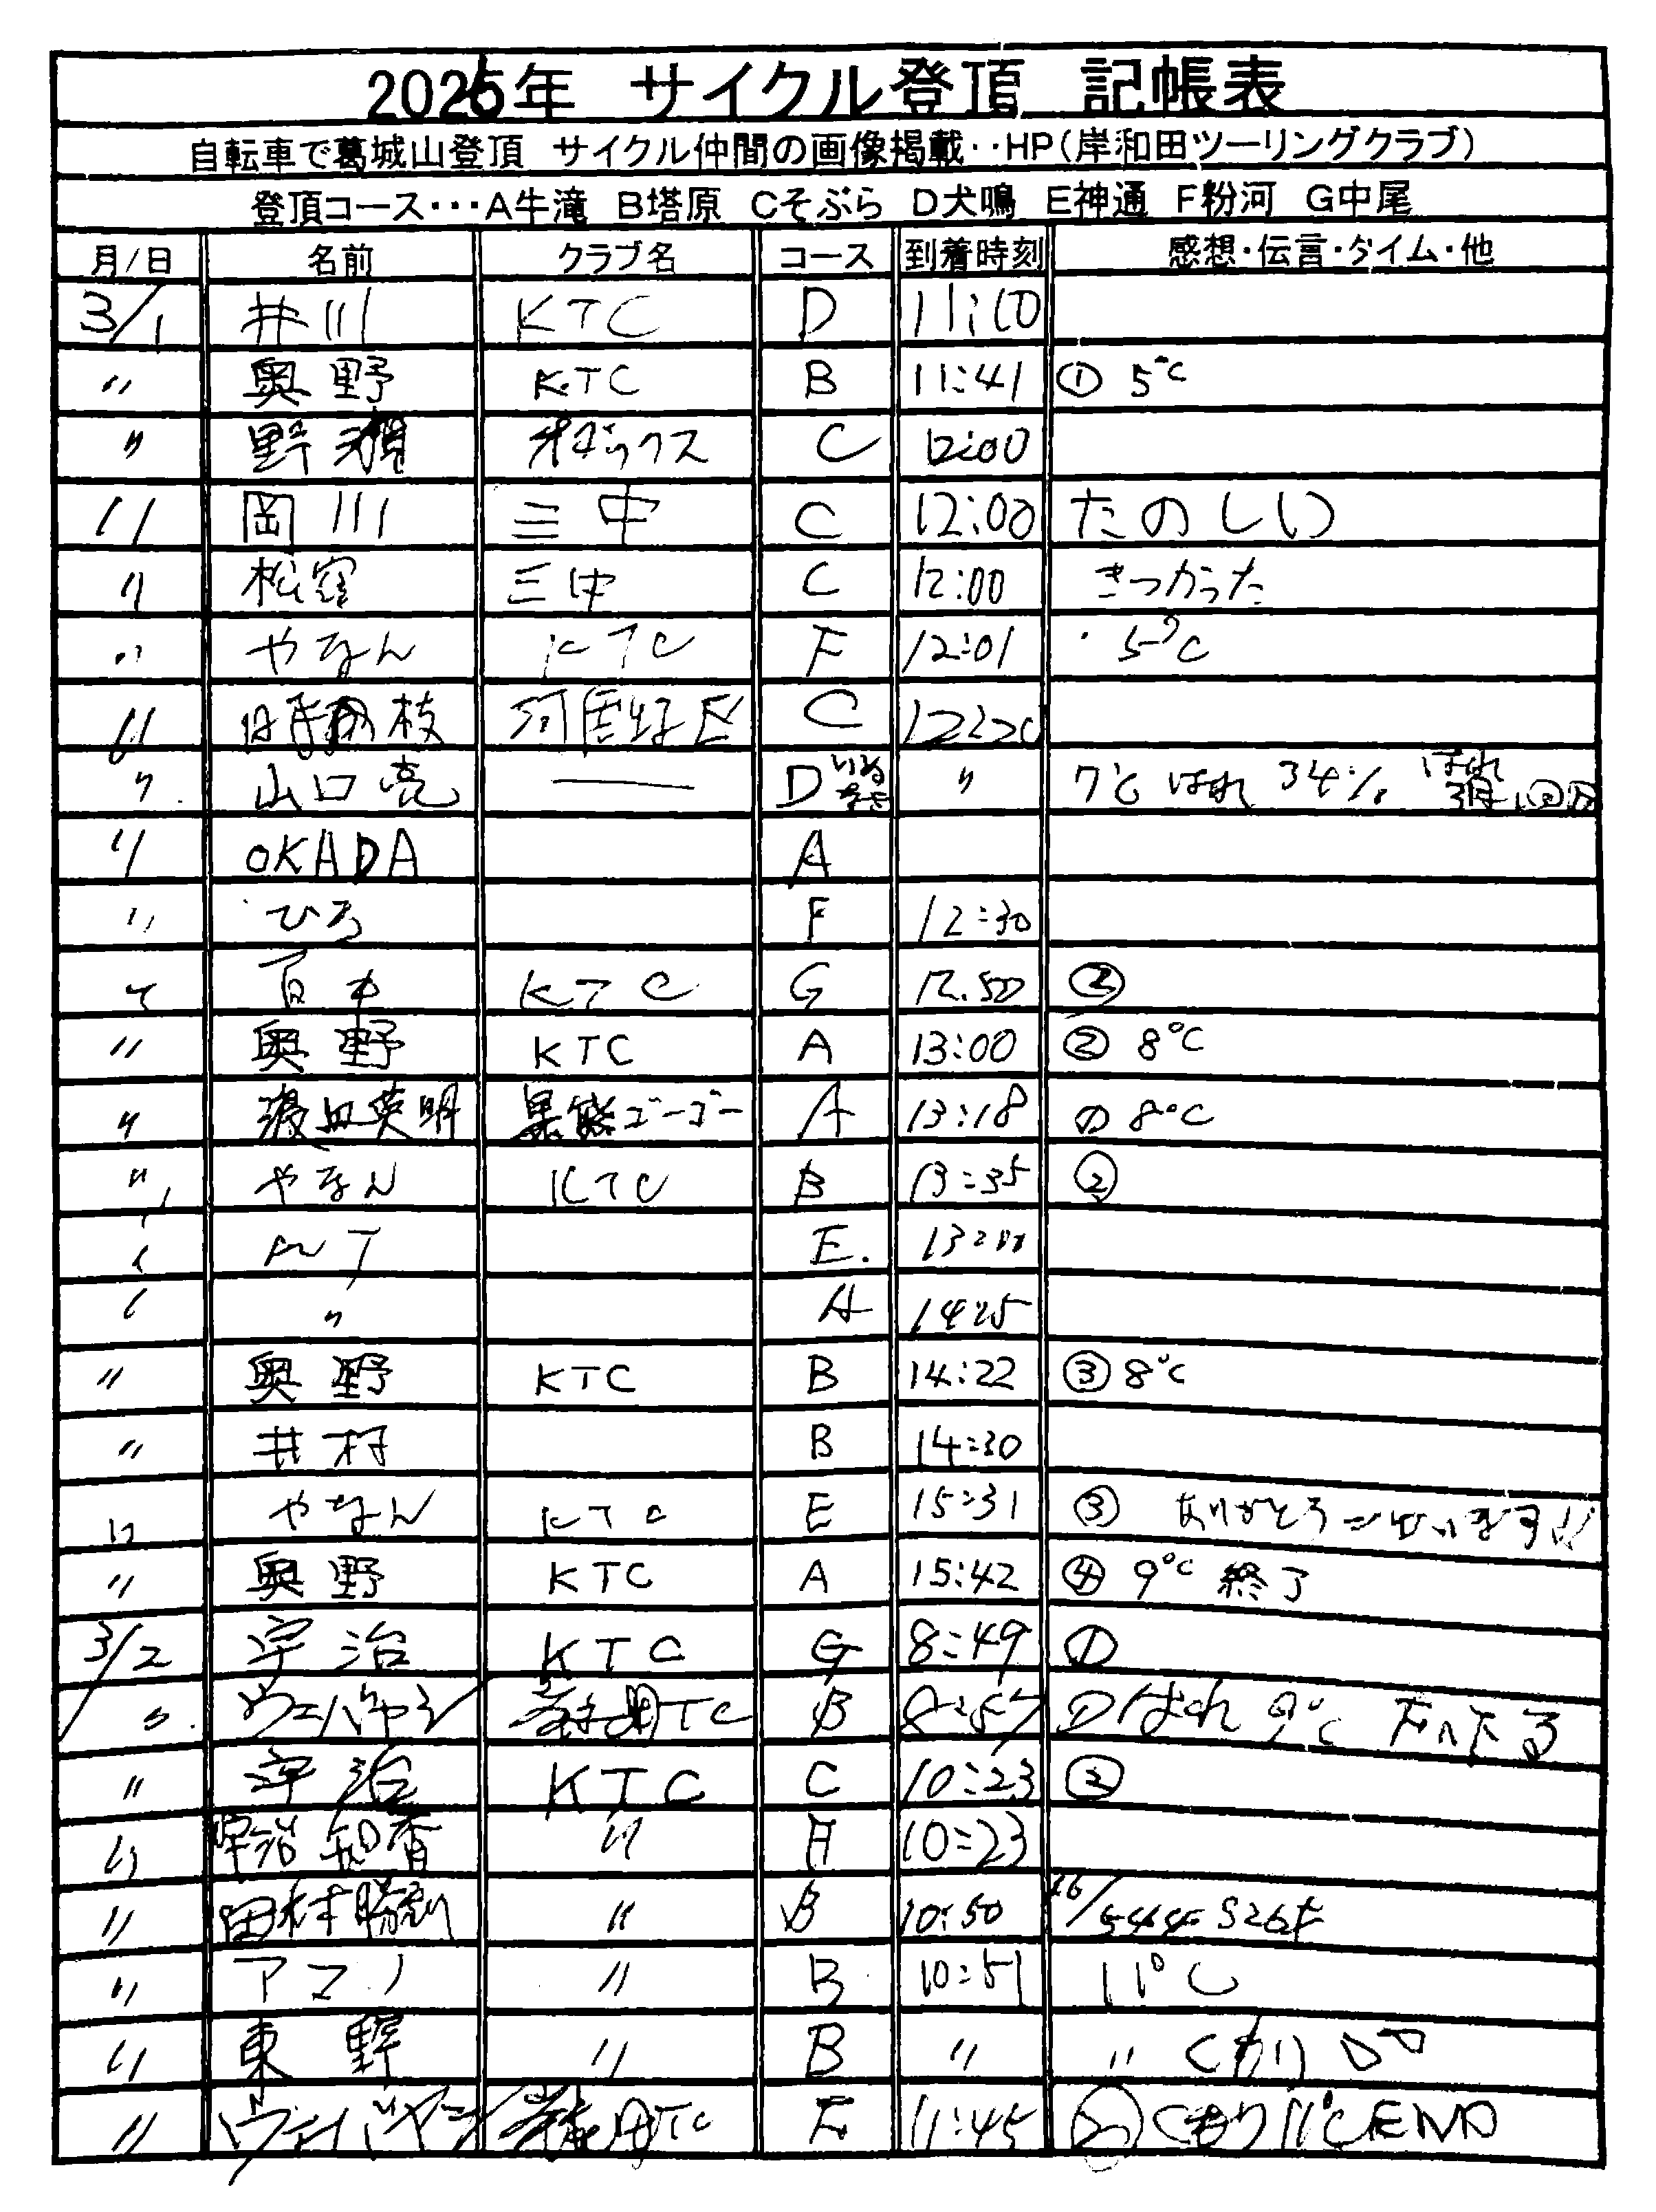 2025年 サイクル登頂 記帳表
自転車で葛城山登頂 サイクル仲間の画像掲載‥HP(岸和田ツーリングクラブ)
登頂コース･･･A牛滝 B塔原 Cそぶら D犬鳴 E神通 F粉河 G中尾
月/日 名前 クラブ名 コース 到着時刻 感想・伝言・タイム・他
3/1 井川 KTC D 11:10
〃 奥野 KTC B 11:41 ① 5℃
〃 野瀬 C 12:00
〃 岡川 三中 C 12:00 たのしい
〃 松窪 三中 C 12:00 きつかった
〃 やなん KTC F 12:01 ・5℃
〃 枝 C 12:20
〃 山口亮 ― D いぬなき 〃 7℃ はれ 34%
〃 OKADA A
〃 ひろ F 12:30
KTC G 12.50 ②
〃 奥野 KTC A 13:00 ② 8℃
〃 英明 黒熊ゴーゴー A 13:18 8℃
〃 やなん KTC B 13:35 ②
E.
〃 A 14:25
〃 奥野 KTC B 14:22 ③ 8℃
〃 井村 B 14:30
〃 やなん KTC E 15:31 ③ ありがとうございます!!
〃 奥野 KTC A 15:42 ④ 9℃ 終了
3/2 宇治 KTC G 8:49 ①
〃 TC B 8:57 ① はれ 9℃
〃 宇治 KTC C 10:23 ②
〃 宇治知香 〃 A 10:23
〃 田村勝 〃 B 10:50
〃 アマノ 〃 B 10:51 11℃
〃 東野 〃 B 〃 〃 くもり
〃 TC E 11:45 ② くもり 11℃ END